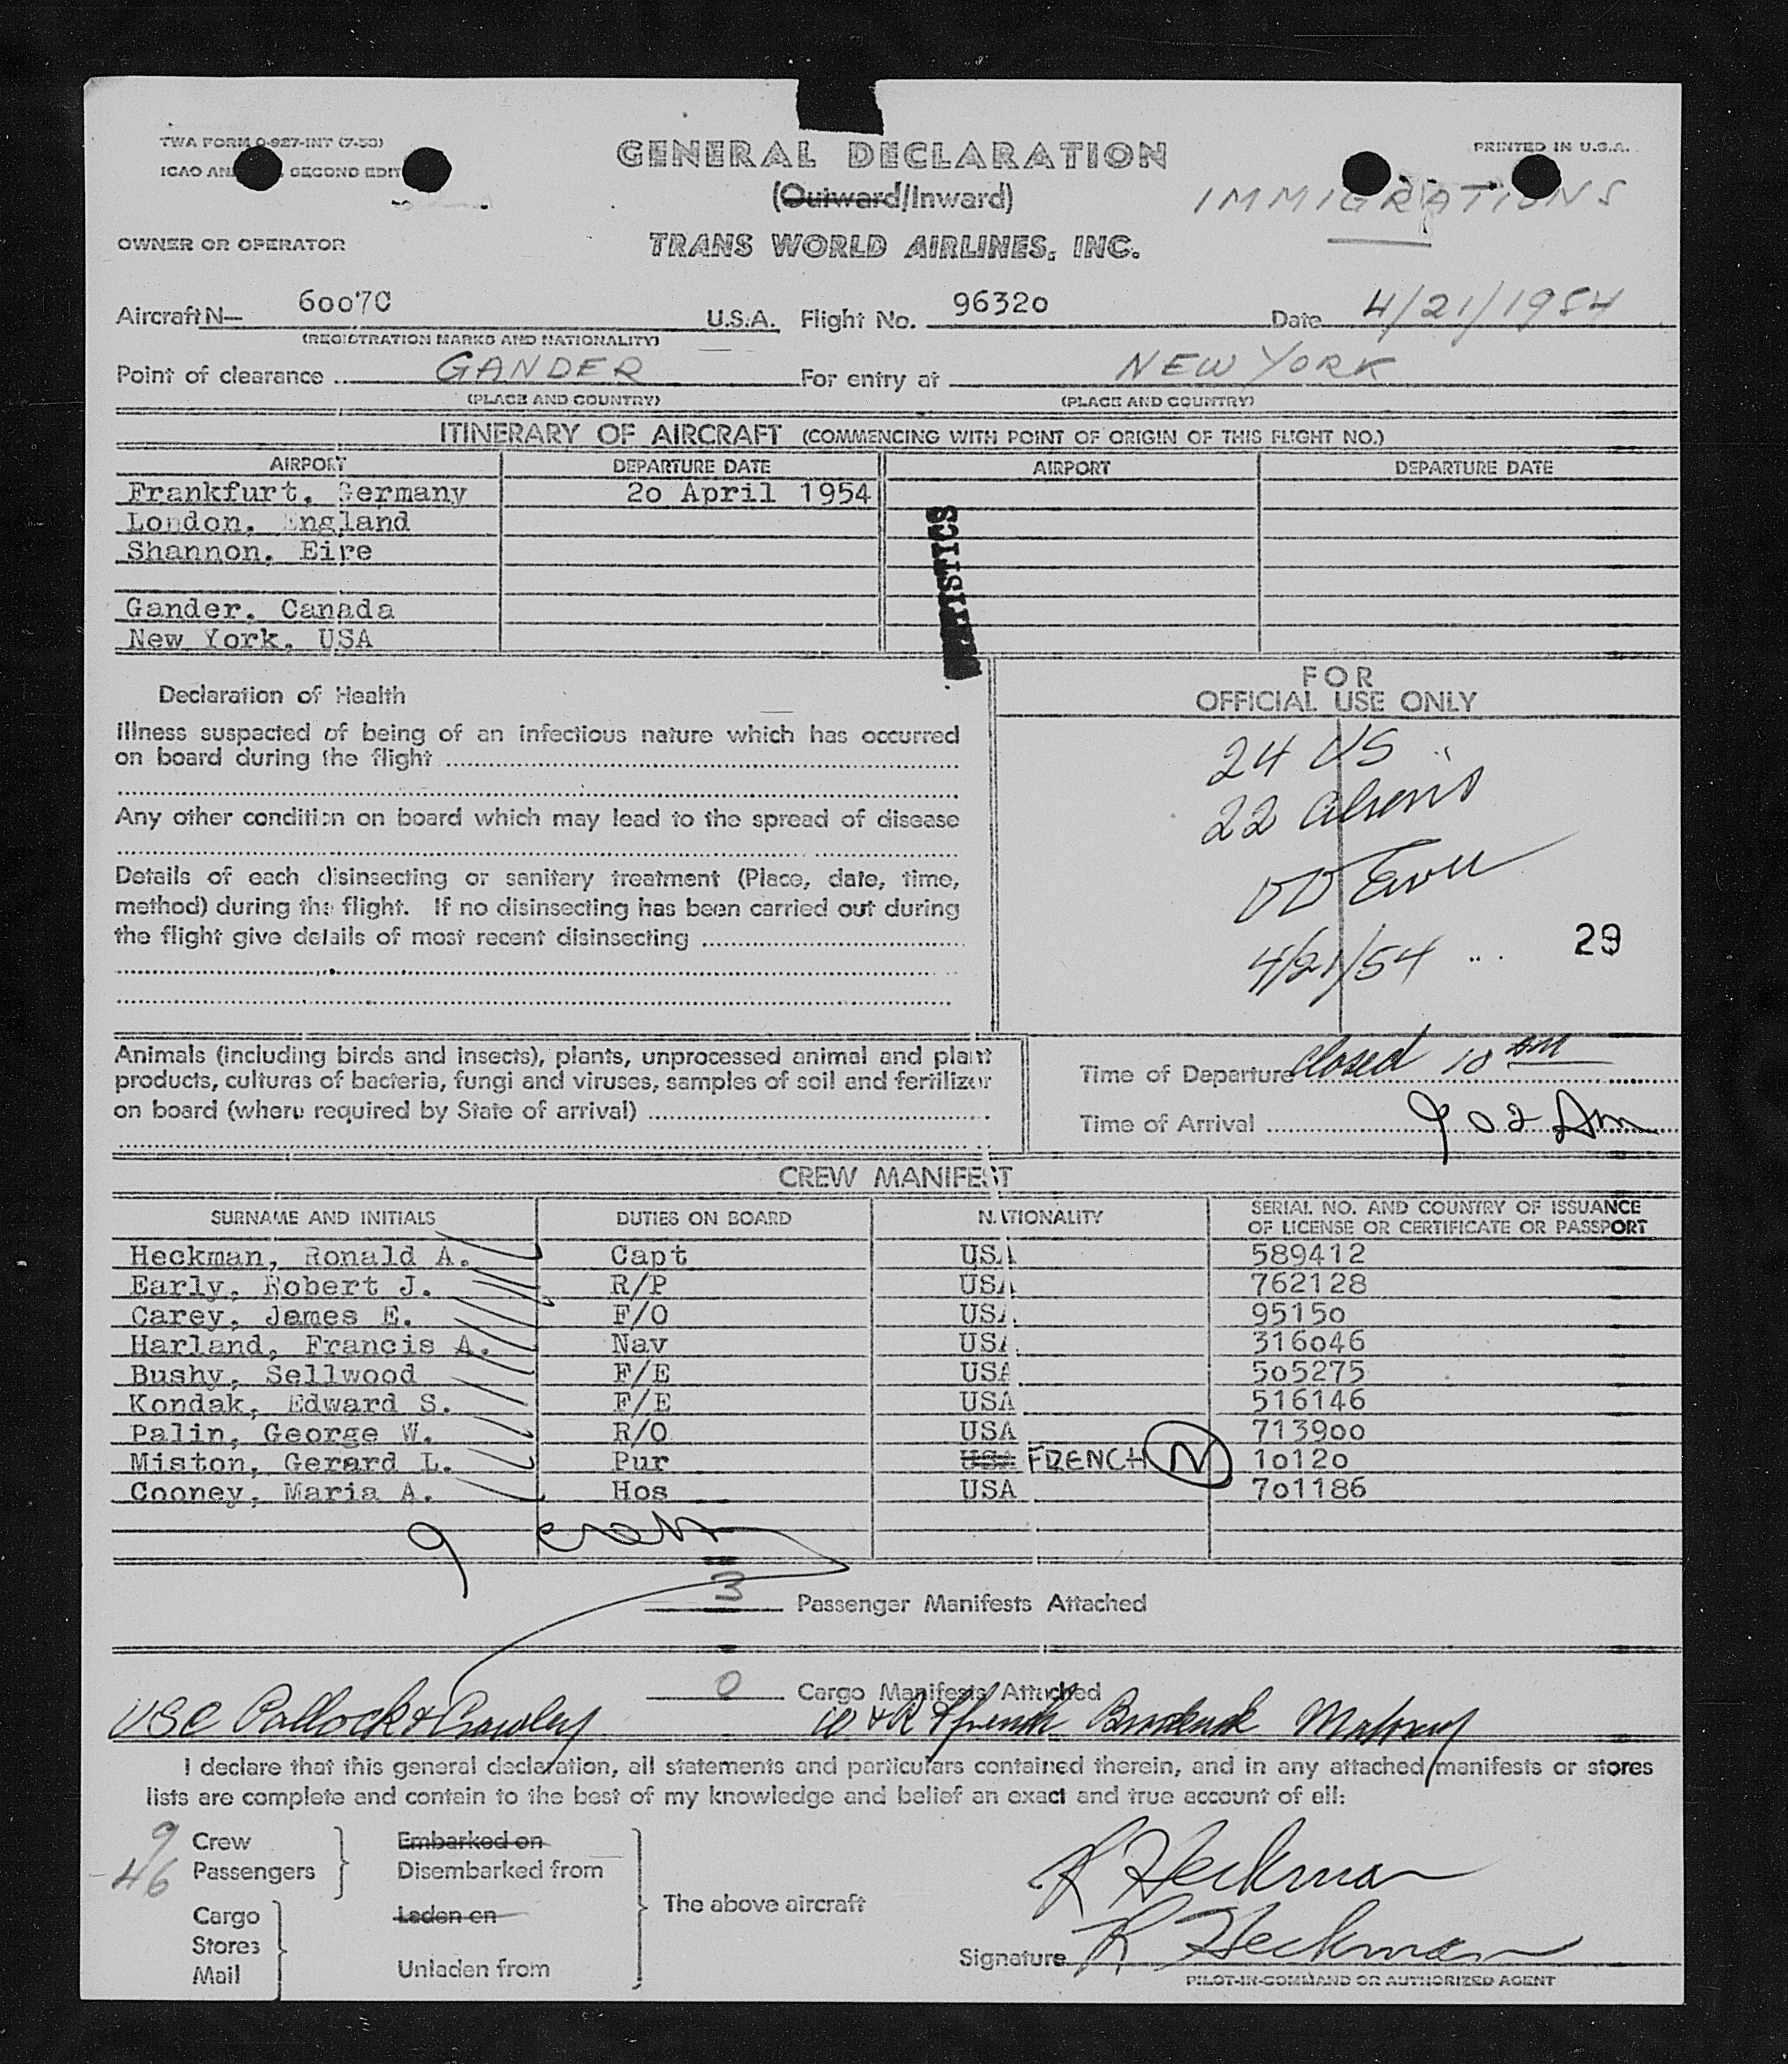 TWA FORM O-927-INT (7-53)
GENERAL DECLARATION
PRINTED IN U.S.A.
ICAO SECOND EDIT
(Outward/Inward)
IMMIGRATIONS
OWNER OR OPERATOR
TRANS WORLD AIRLINES, INC.
Aircraft N— 6007C U.S.A. Flight No. 96320 Date 4/21/1954
(REGISTRATION MARKS AND NATIONALITY)
Point of clearance GANDER For entry at NEW YORK
(PLACE AND COUNTRY) (PLACE AND COUNTRY)
ITINERARY OF AIRCRAFT (COMMENCING WITH POINT OF ORIGIN OF THIS FLIGHT NO.)
AIRPORT DEPARTURE DATE AIRPORT DEPARTURE DATE
Frankfurt, Germany 20 April 1954
London, England
Shannon, Eire
Gander, Canada
New York, USA
STATISTICS
Declaration of Health
Illness suspected of being of an infectious nature which has occurred
on board during the flight
Any other condition on board which may lead to the spread of disease
Details of each disinsecting or sanitary treatment (Place, date, time,
method) during the flight. If no disinsecting has been carried out during
the flight give details of most recent disinsecting
FOR
OFFICIAL USE ONLY
24 US
22 Aliens
4/21/54
29
Animals (including birds and insects), plants, unprocessed animal and plant
products, cultures of bacteria, fungi and viruses, samples of soil and fertilizer
on board (where required by State of arrival)
Time of Departure closed 10 am
Time of Arrival 902 Am
CREW MANIFEST
SURNAME AND INITIALS DUTIES ON BOARD NATIONALITY SERIAL NO. AND COUNTRY OF ISSUANCE
OF LICENSE OR CERTIFICATE OR PASSPORT
Heckman, Ronald A. Capt USA 589412
Early, Robert J. R/P USA 762128
Carey, James E. F/O USA 95150
Harland, Francis A. Nav USA 316046
Bushy, Sellwood F/E USA 505275
Kondak, Edward S. F/E USA 516146
Palin, George W. R/O USA 713900
Miston, Gerard L. Pur USA FRENCH N 10120
Cooney, Maria A. Hos USA 701186
9 crew
3 Passenger Manifests Attached
0 Cargo Manifests Attached
USC Pollock & Crowley Broderick Maloney
I declare that this general declaration, all statements and particulars contained therein, and in any attached manifests or stores
lists are complete and contain to the best of my knowledge and belief an exact and true account of all:
9 Crew
46 Passengers
Embarked on
Disembarked from
Cargo
Stores
Mail
Laden on
Unladen from
The above aircraft
R Heckman
Signature R Heckman
PILOT-IN-COMMAND OR AUTHORIZED AGENT